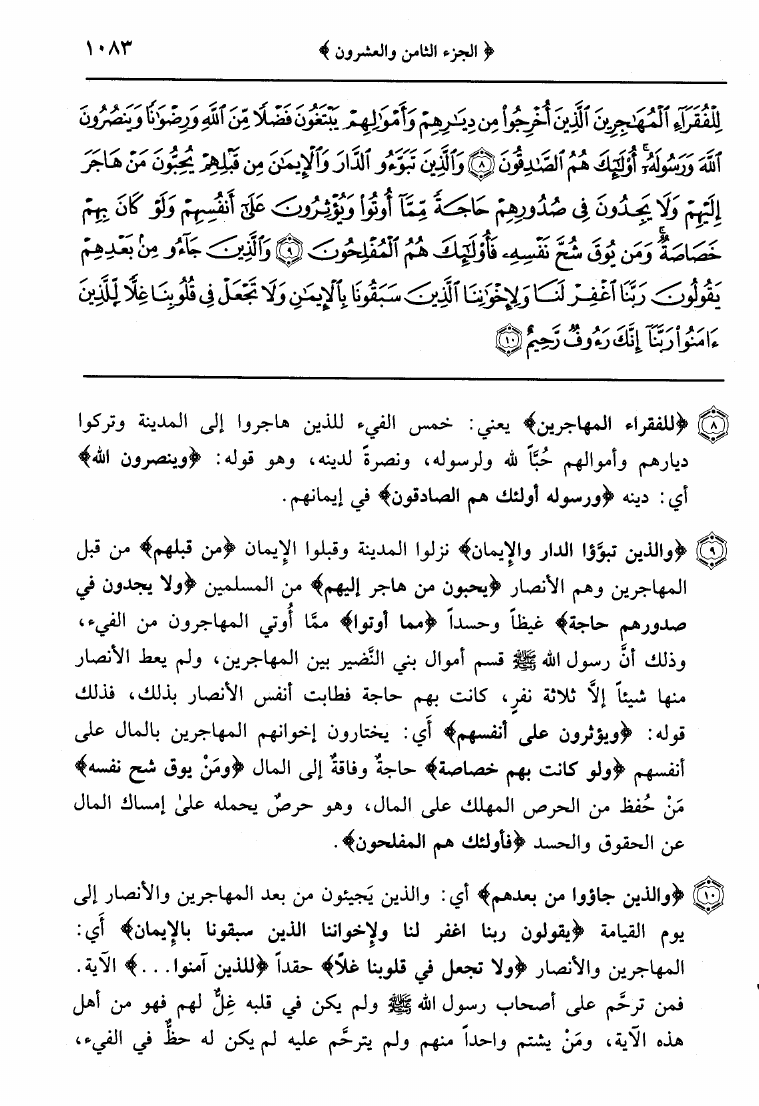 ﴿ الجزء الثامن والعشرون ﴾ ١٠٨٣
لِلْفُقَرَآءِ ٱلْمُهَٰجِرِينَ ٱلَّذِينَ أُخْرِجُوا۟ مِن دِيَٰرِهِمْ وَأَمْوَٰلِهِمْ يَبْتَغُونَ فَضْلًا مِّنَ ٱللَّهِ وَرِضْوَٰنًا وَيَنصُرُونَ
ٱللَّهَ وَرَسُولَهُۥٓ ۚ أُو۟لَٰٓئِكَ هُمُ ٱلصَّٰدِقُونَ ۝٨ وَٱلَّذِينَ تَبَوَّءُو ٱلدَّارَ وَٱلْإِيمَٰنَ مِن قَبْلِهِمْ يُحِبُّونَ مَنْ هَاجَرَ
إِلَيْهِمْ وَلَا يَجِدُونَ فِى صُدُورِهِمْ حَاجَةً مِّمَّآ أُوتُوا۟ وَيُؤْثِرُونَ عَلَىٰٓ أَنفُسِهِمْ وَلَوْ كَانَ بِهِمْ
خَصَاصَةٌ ۚ وَمَن يُوقَ شُحَّ نَفْسِهِۦ فَأُو۟لَٰٓئِكَ هُمُ ٱلْمُفْلِحُونَ ۝٩ وَٱلَّذِينَ جَآءُو مِنۢ بَعْدِهِمْ
يَقُولُونَ رَبَّنَا ٱغْفِرْ لَنَا وَلِإِخْوَٰنِنَا ٱلَّذِينَ سَبَقُونَا بِٱلْإِيمَٰنِ وَلَا تَجْعَلْ فِى قُلُوبِنَا غِلًّا لِّلَّذِينَ
ءَامَنُوا۟ رَبَّنَآ إِنَّكَ رَءُوفٌ رَّحِيمٌ ۝١٠
٨ ﴿للفقراء المهاجرين﴾ يعني: خمس الفيء للذين هاجروا إلى المدينة وتركوا
ديارهم وأموالهم حُبَّاً لله ولرسوله، ونصرةً لدينه، وهو قوله: ﴿وينصرون الله﴾
أي: دينه ﴿ورسوله أولئك هم الصادقون﴾ في إيمانهم.
٩ ﴿والذين تبوَّؤا الدار والإيمان﴾ نزلوا المدينة وقبلوا الإيمان ﴿من قبلهم﴾ من قبل
المهاجرين وهم الأنصار ﴿يحبون من هاجر إليهم﴾ من المسلمين ﴿ولا يجدون في
صدورهم حاجة﴾ غيظاً وحسداً ﴿مما أوتوا﴾ ممَّا أُوتي المهاجرون من الفيء،
وذلك أنَّ رسول الله ﷺ قسم أموال بني النَّضير بين المهاجرين، ولم يعط الأنصار
منها شيئاً إلَّا ثلاثة نفرٍ، كانت بهم حاجة فطابت أنفس الأنصار بذلك، فذلك
قوله: ﴿ويؤثرون على أنفسهم﴾ أَي: يختارون إخوانهم المهاجرين بالمال على
أنفسهم ﴿ولو كانت بهم خصاصة﴾ حاجةٌ وفاقةٌ إلى المال ﴿ومَنْ يوق شح نفسه﴾
مَنْ حُفظ من الحرص المهلك على المال، وهو حرصٌ يحمله علىٰ إمساك المال
عن الحقوق والحسد ﴿فأولئك هم المفلحون﴾.
١٠ ﴿والذين جاؤوا من بعدهم﴾ أي: والذين يَجيئون من بعد المهاجرين والأنصار إلى
يوم القيامة ﴿يقولون ربنا اغفر لنا ولإخواننا الذين سبقونا بالإيمان﴾ أَي:
المهاجرين والأنصار ﴿ولا تجعل في قلوبنا غلاً﴾ حقداً ﴿للذين آمنوا...﴾ الآية.
فمن ترحَّم على أصحاب رسول الله ﷺ ولم يكن في قلبه غِلٌّ لهم فهو من أهل
هذه الآية، ومَنْ يشتم واحداً منهم ولم يترحَّم عليه لم يكن له حظٌّ في الفيء،